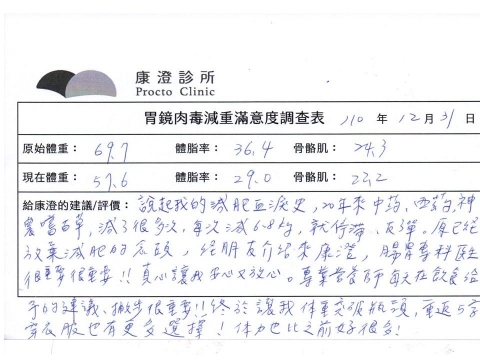 康澄診所
Procto Clinic
胃鏡肉毒減重滿意度調查表 110 年 12 月 31 日
原始體重： 69.7 體脂率： 36.4 骨骼肌： 24.3
現在體重： 57.6 體脂率： 29.0 骨骼肌： 22.2
給康澄的建議/評價： 說起我的減肥血淚史，20年來中药、西药、神
農嚐百草，減了很多次，每次減6-8kg，就停滯、反彈。原已經
放棄減肥的念頭，經朋友介紹來康澄，腸胃專科医生
很重要很重要!! 真心讓我安心又放心。專業營養師每天在飲食給
予的建議、撇步很重要!! 終於讓我体重突破瓶頸，重返5字
穿衣服也有更多選擇！体力也比之前好很多!